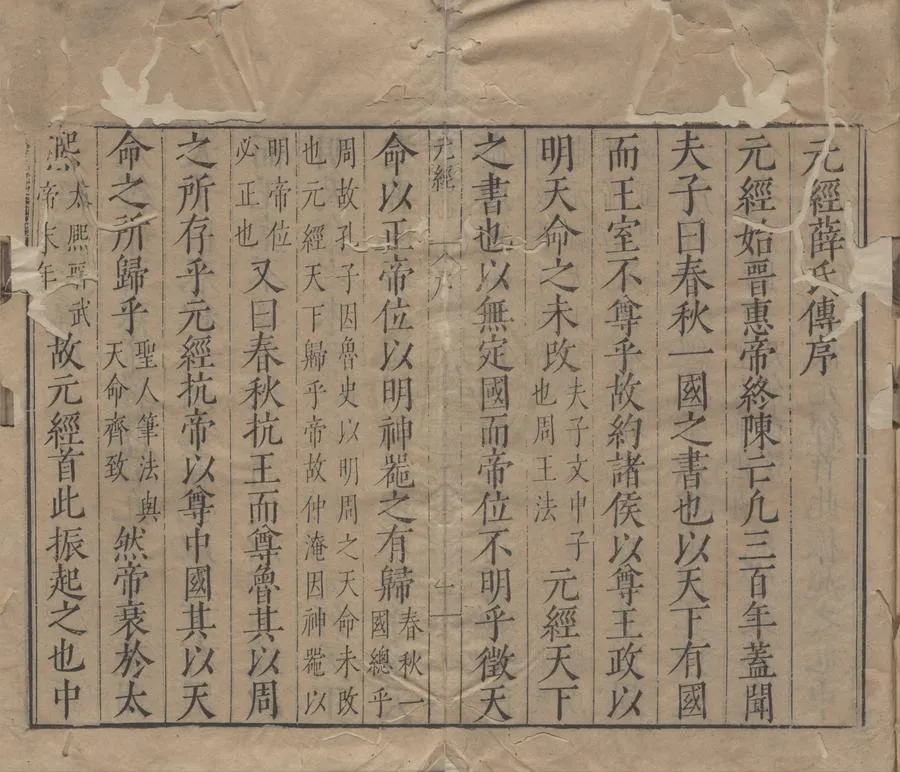 元經薛氏傳序
元經始晉惠帝終陳亡凡三百年蓋聞
夫子曰春秋一國之書也以天下有國
而王室不尊乎故約諸侯以尊王政以
明天命之未改夫子文中子也周王法元經天下
之書也以無定國而帝位不明乎徵天
元經
命以正帝位以明神噐之有歸春秋一國總乎
周故孔子因魯史以明周之天命未改
也元經天下歸乎帝故仲淹因神噐以
明帝位必正也又曰春秋抗王而尊魯其以周
之所存乎元經抗帝以尊中國其以天
命之所歸乎聖人筆法與天命齊致然帝衰於太
熙太熙晉武帝末年故元經首此振起之也中